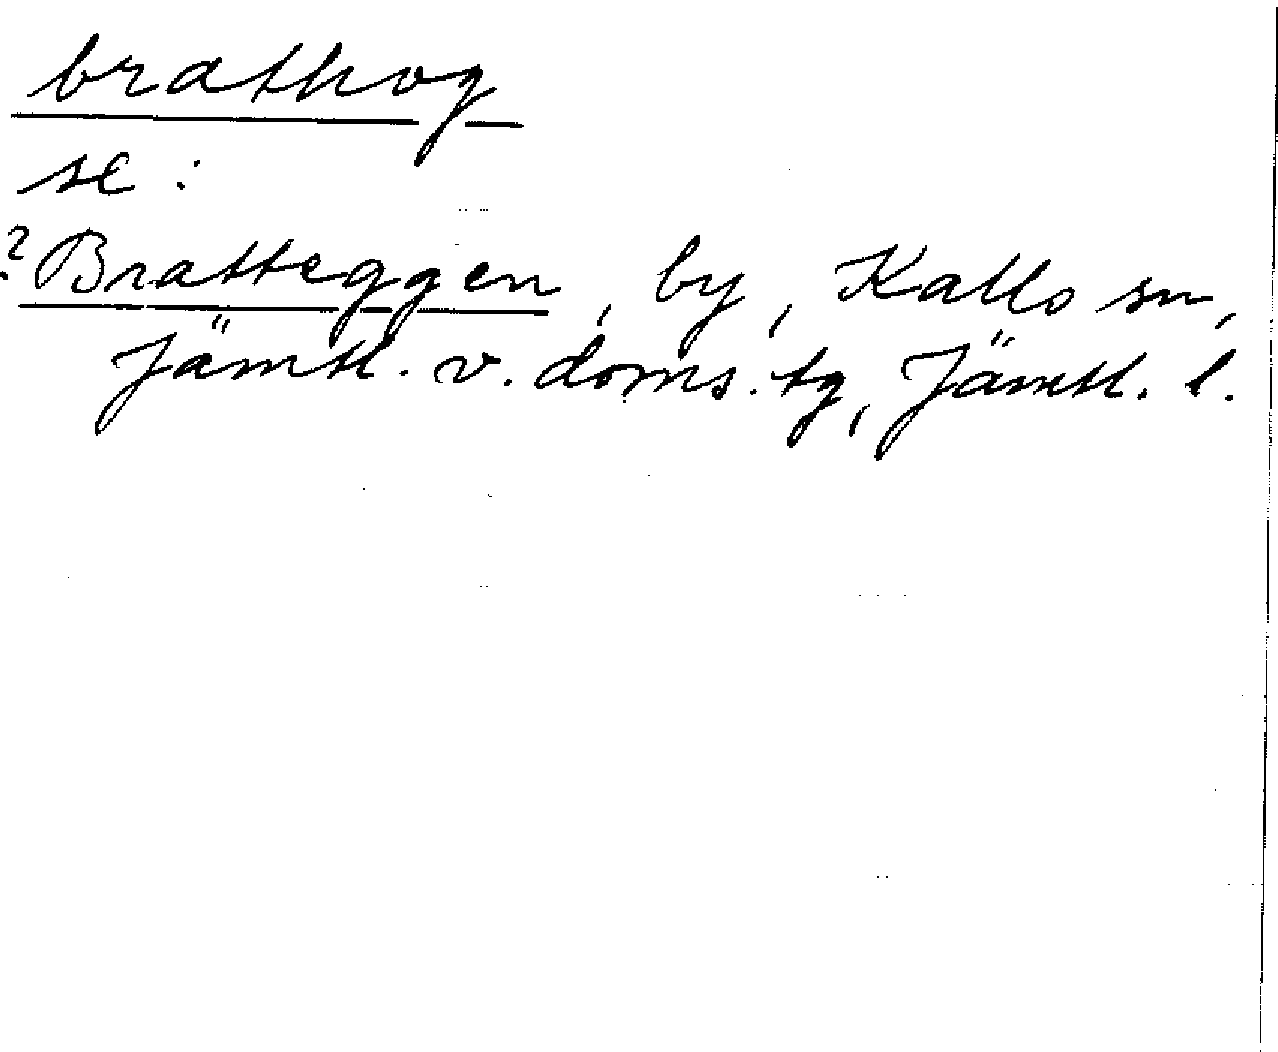 brathog
se :
? Bratteggen, by, Kalls sn,
Jämtl. v. doms. tg, Jämtl. l.